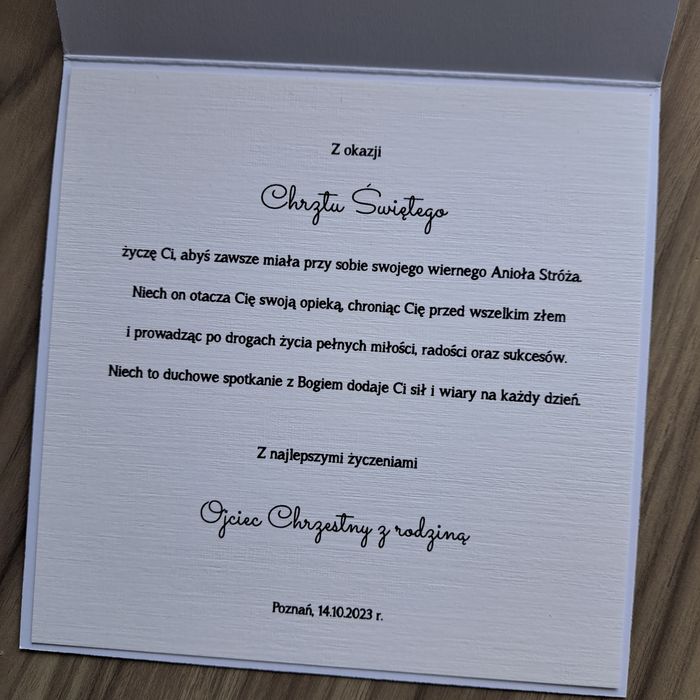 Z okazji
Chrztu Świętego
życzę Ci, abyś zawsze miała przy sobie swojego wiernego Anioła Stróża.
Niech on otacza Cię swoją opieką, chroniąc Cię przed wszelkim złem
i prowadząc po drogach życia pełnych miłości, radości oraz sukcesów.
Niech to duchowe spotkanie z Bogiem dodaje Ci sił i wiary na każdy dzień.
Z najlepszymi życzeniami
Ojciec Chrzestny z rodziną
Poznań, 14.10.2023 r.